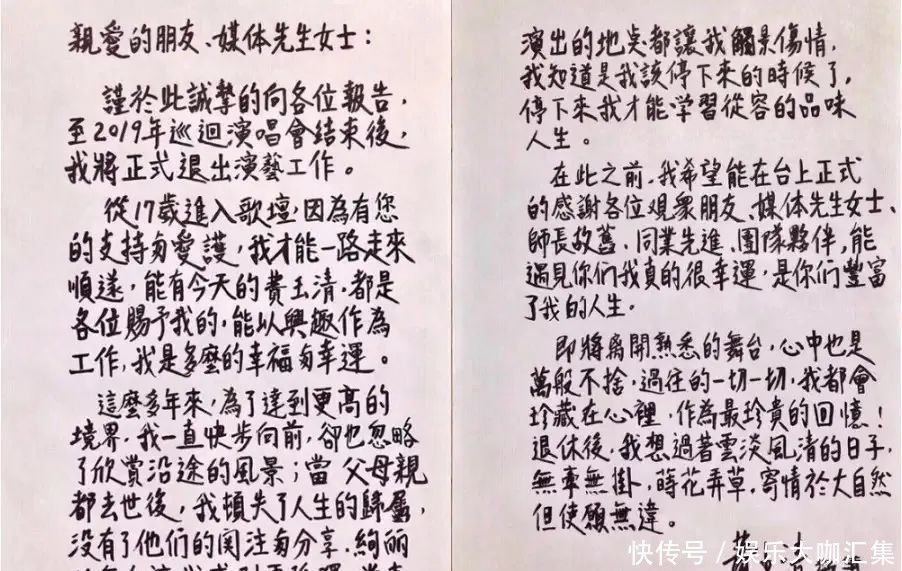 親愛的朋友、媒体先生女士：
謹於此誠摯的向各位報告，
至2019年巡迴演唱會結束後，
我將正式退出演藝工作。
從17歲進入歌壇，因為有您
的支持与愛護，我才能一路走來
順遂，能有今天的費玉清，都是
各位賜予我的，能以興趣作為
工作，我是多麼的幸福与幸運。
這麼多年來，為了達到更高的
境界，我一直快步向前，卻也忽略
了欣賞沿途的風景；當父母親
都去世後，我頓失了人生的歸屬，
沒有了他們的関注与分享，絢麗
演出的地点都讓我觸景傷情，
我知道是我該停下來的時候了，
停下來我才能学習從容的品味
人生。
在此之前，我希望能在台上正式
的感謝各位观眾朋友、媒体先生女士、
師長故舊、同業先進、團隊夥伴，能
遇見你們我真的很幸運，是你們豐富
了我的人生。
即將离開熟悉的舞台，心中也是
萬般不捨，過往的一切一切，我都會
珍藏在心裡，作為最珍貴的回憶！
退休後，我想過著雲淡風清的日子，
無牽無掛，蒔花弄草，寄情於大自然
但使願無違。
快传号／娱乐大咖汇集